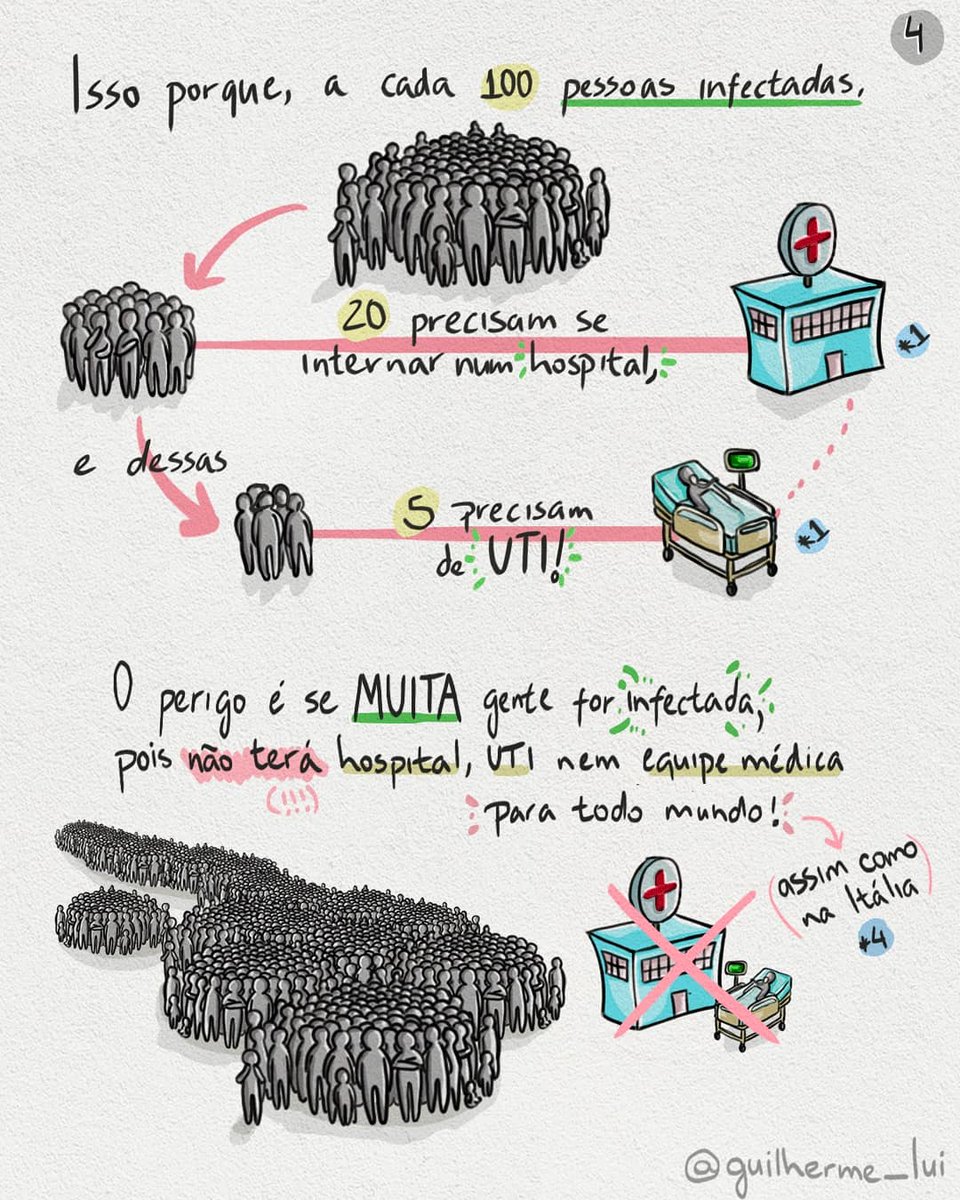 4
Isso porque, a cada 100 pessoas infectadas,
20 precisam se
internar num hospital,
*1
e dessas
5 precisam
de UTI!
*1
O perigo é se MUITA gente for infectada,
pois não terá hospital, UTI nem equipe médica
(!!!)
para todo mundo!
(assim como
na Itália)
*4
@guilherme_lui